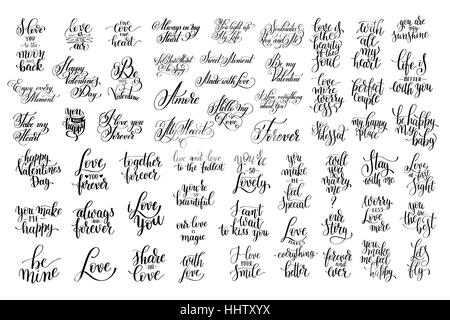 I love
you
to the
moon
back
love
is
art
one
love one
heart
Always in my
Heart
You light up
my Life
Soulmates
love is
the
beauty
of the
soul
with
all
my
heart
you are
my
sunshine
Enjoy every
Moment
Happy
Valentine's
Day
Be
my
Valentine
Sweet Moment
Made with love
Be my
Valentine
love
more
worry
less
perfect
couple
life is
BETTER
with you
Take my
Heart
you
make me
happy
I love you
Forever
Amore
Hello my
Love
My Heart
Forever
blessed
my happy
place
be happy
my
baby
happy
Valentines
Day
Love
YOU
forever
together
forever
live and love
to the fullest
you're
SO
Lovely
you
make
me
feel
Special
will
you
marry
me
?
Stay
with me
Love
at first
Sight
you make
ME
happy
always
and
forever
Love
you
you're
so
beautiful
our love
is
magic
I can't
wait
to kiss you
our
Story
worry
LESS
love
more
you
are
the
best
be
mine
Love
Share
THE
love
with
love
I
love
YOUR
Smile
Love
MAKES
everything
better
forever
and
ever
you
make
me feel
happy
let's
fly
alamy
Image ID: HHTXYX
www.alamy.com